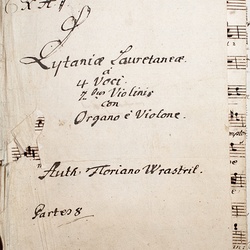 Lytaniæ Lauretaneæ
a
4 Voci
2 bus Violinis
con
Organo è Violone.
Auth. Floriano Wrastril.
Partes 8